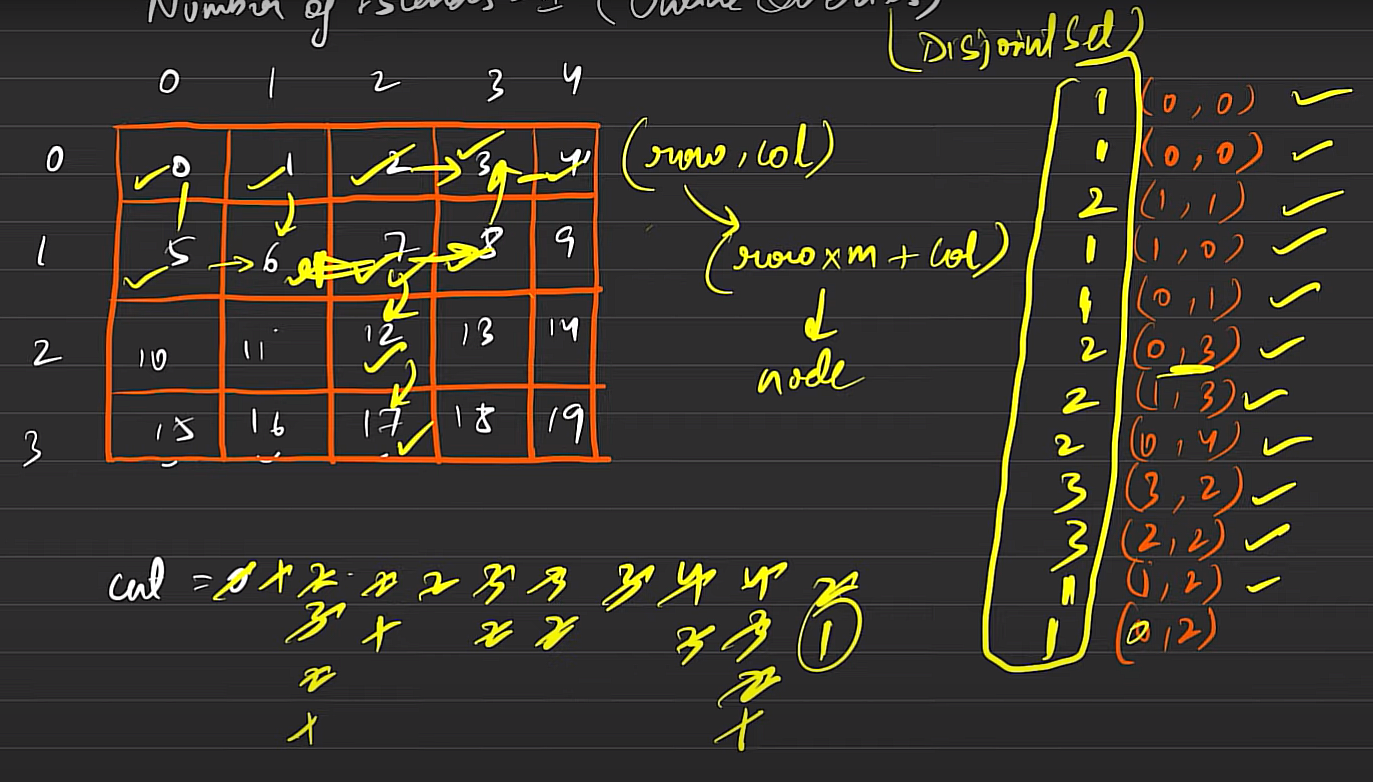 Number of Islands - I (Online Queries)
(Disjoint Set)
0 1 2 3 4
0 0 1 2 3 4
1 5 6 7 8 9
2 10 11 12 13 14
3 15 16 17 18 19
(row, col)
(row x m + col)
node
1 (0, 0)
1 (0, 0)
2 (1, 1)
1 (1, 0)
1 (0, 1)
2 (0, 3)
2 (1, 3)
2 (0, 4)
3 (3, 2)
3 (2, 2)
1 (1, 2)
1 (0, 2)
cnt = 0 1 2 2 2 3 3 3 4 4 2
3 1 2 2 3 3 1
2 2
1 1